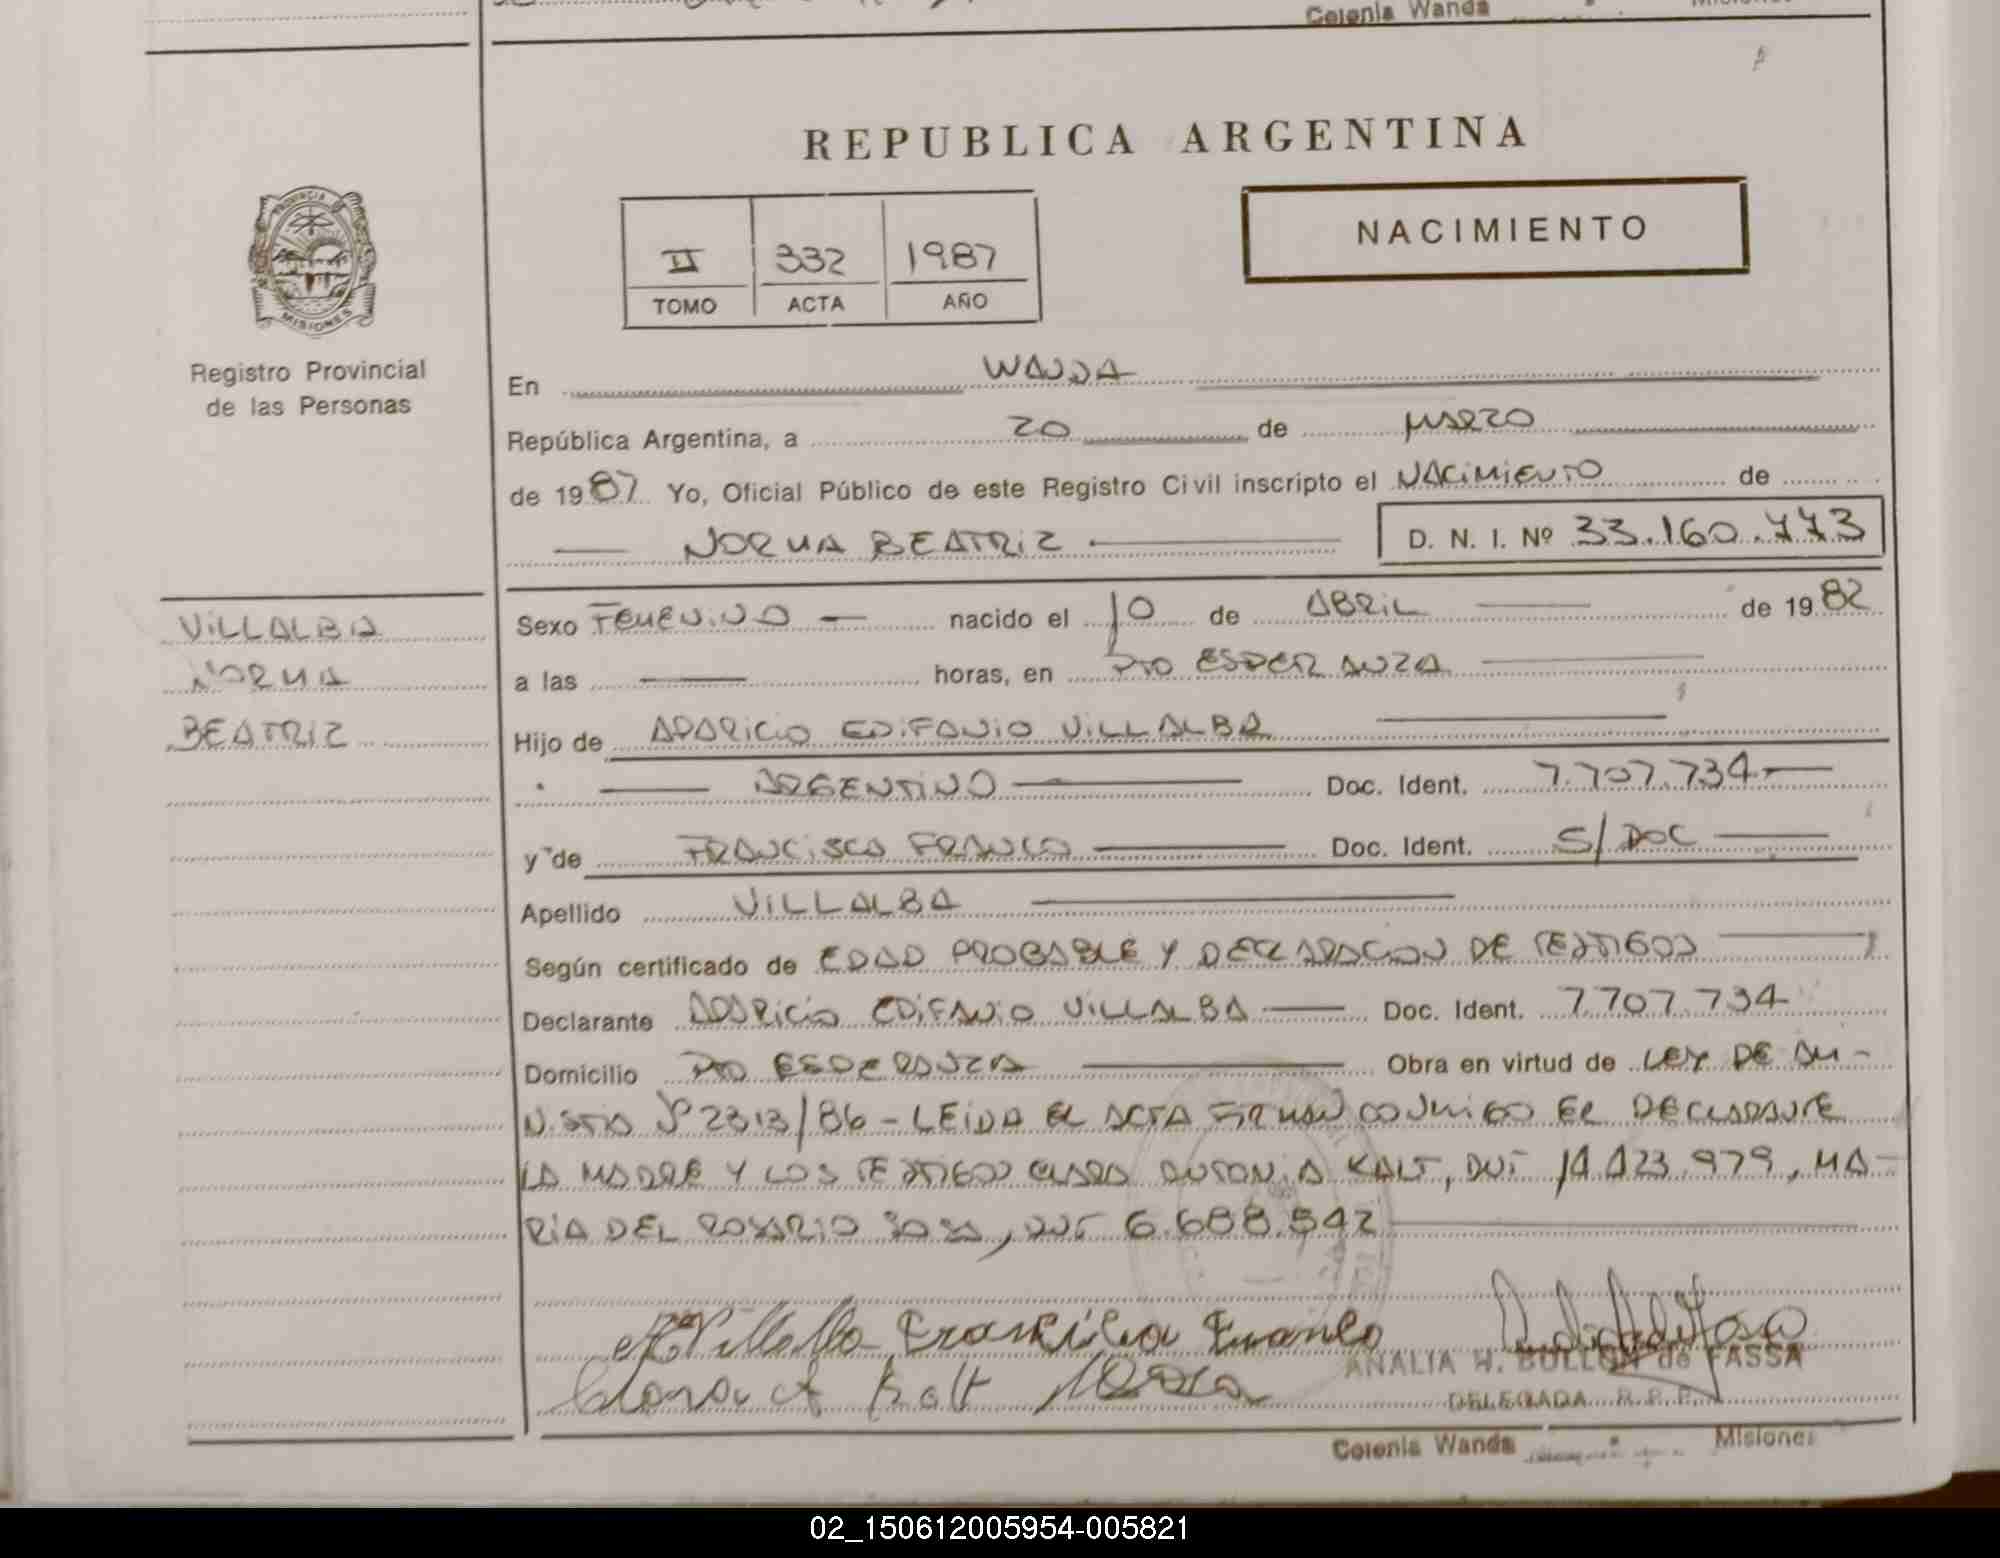 Colonia Wanda
REPUBLICA ARGENTINA
NACIMIENTO
II 332 1987
TOMO ACTA AÑO
PROVINCIA DE
MISIONES
Registro Provincial
de las Personas
En WANDA
República Argentina, a 20 de MARZO
de 1987 Yo, Oficial Público de este Registro Civil inscripto el NACIMIENTO de
NORMA BEATRIZ D. N. I. Nº 33.160.773
VILLALBA
NORMA
BEATRIZ
Sexo FEMENINO nacido el 10 de ABRIL de 1982
a las horas, en PTO ESPERANZA
Hijo de APARICIO EPIFANIO VILLALBA
ARGENTINO Doc. Ident. 7.707.734
y de FRANCISCA FRANCO Doc. Ident. S/DOC
Apellido VILLALBA
Según certificado de EDAD PROBABLE Y DECLARACION DE TESTIGOS
Declarante APARICIO EPIFANIO VILLALBA Doc. Ident. 7707.734
Domicilio PTO ESPERANZA Obra en virtud de LEY DE AM-
NISTIA Nº 2313/86 - LEIDA EL ACTA FIRMAN CONMIGO EL DECLARANTE
LA MADRE Y LOS TESTIGOS CLARA ANTONIA KALT, DNI 14.423.979, MA-
RIA DEL ROSARIO SOSA, DNI 6.688.542
Francisca Franco
Clara A Kalt
ANALIA H. BULLON de FASSA
DELEGADA R. P. P.
Colonia Wanda Misiones
02_150612005954-005821